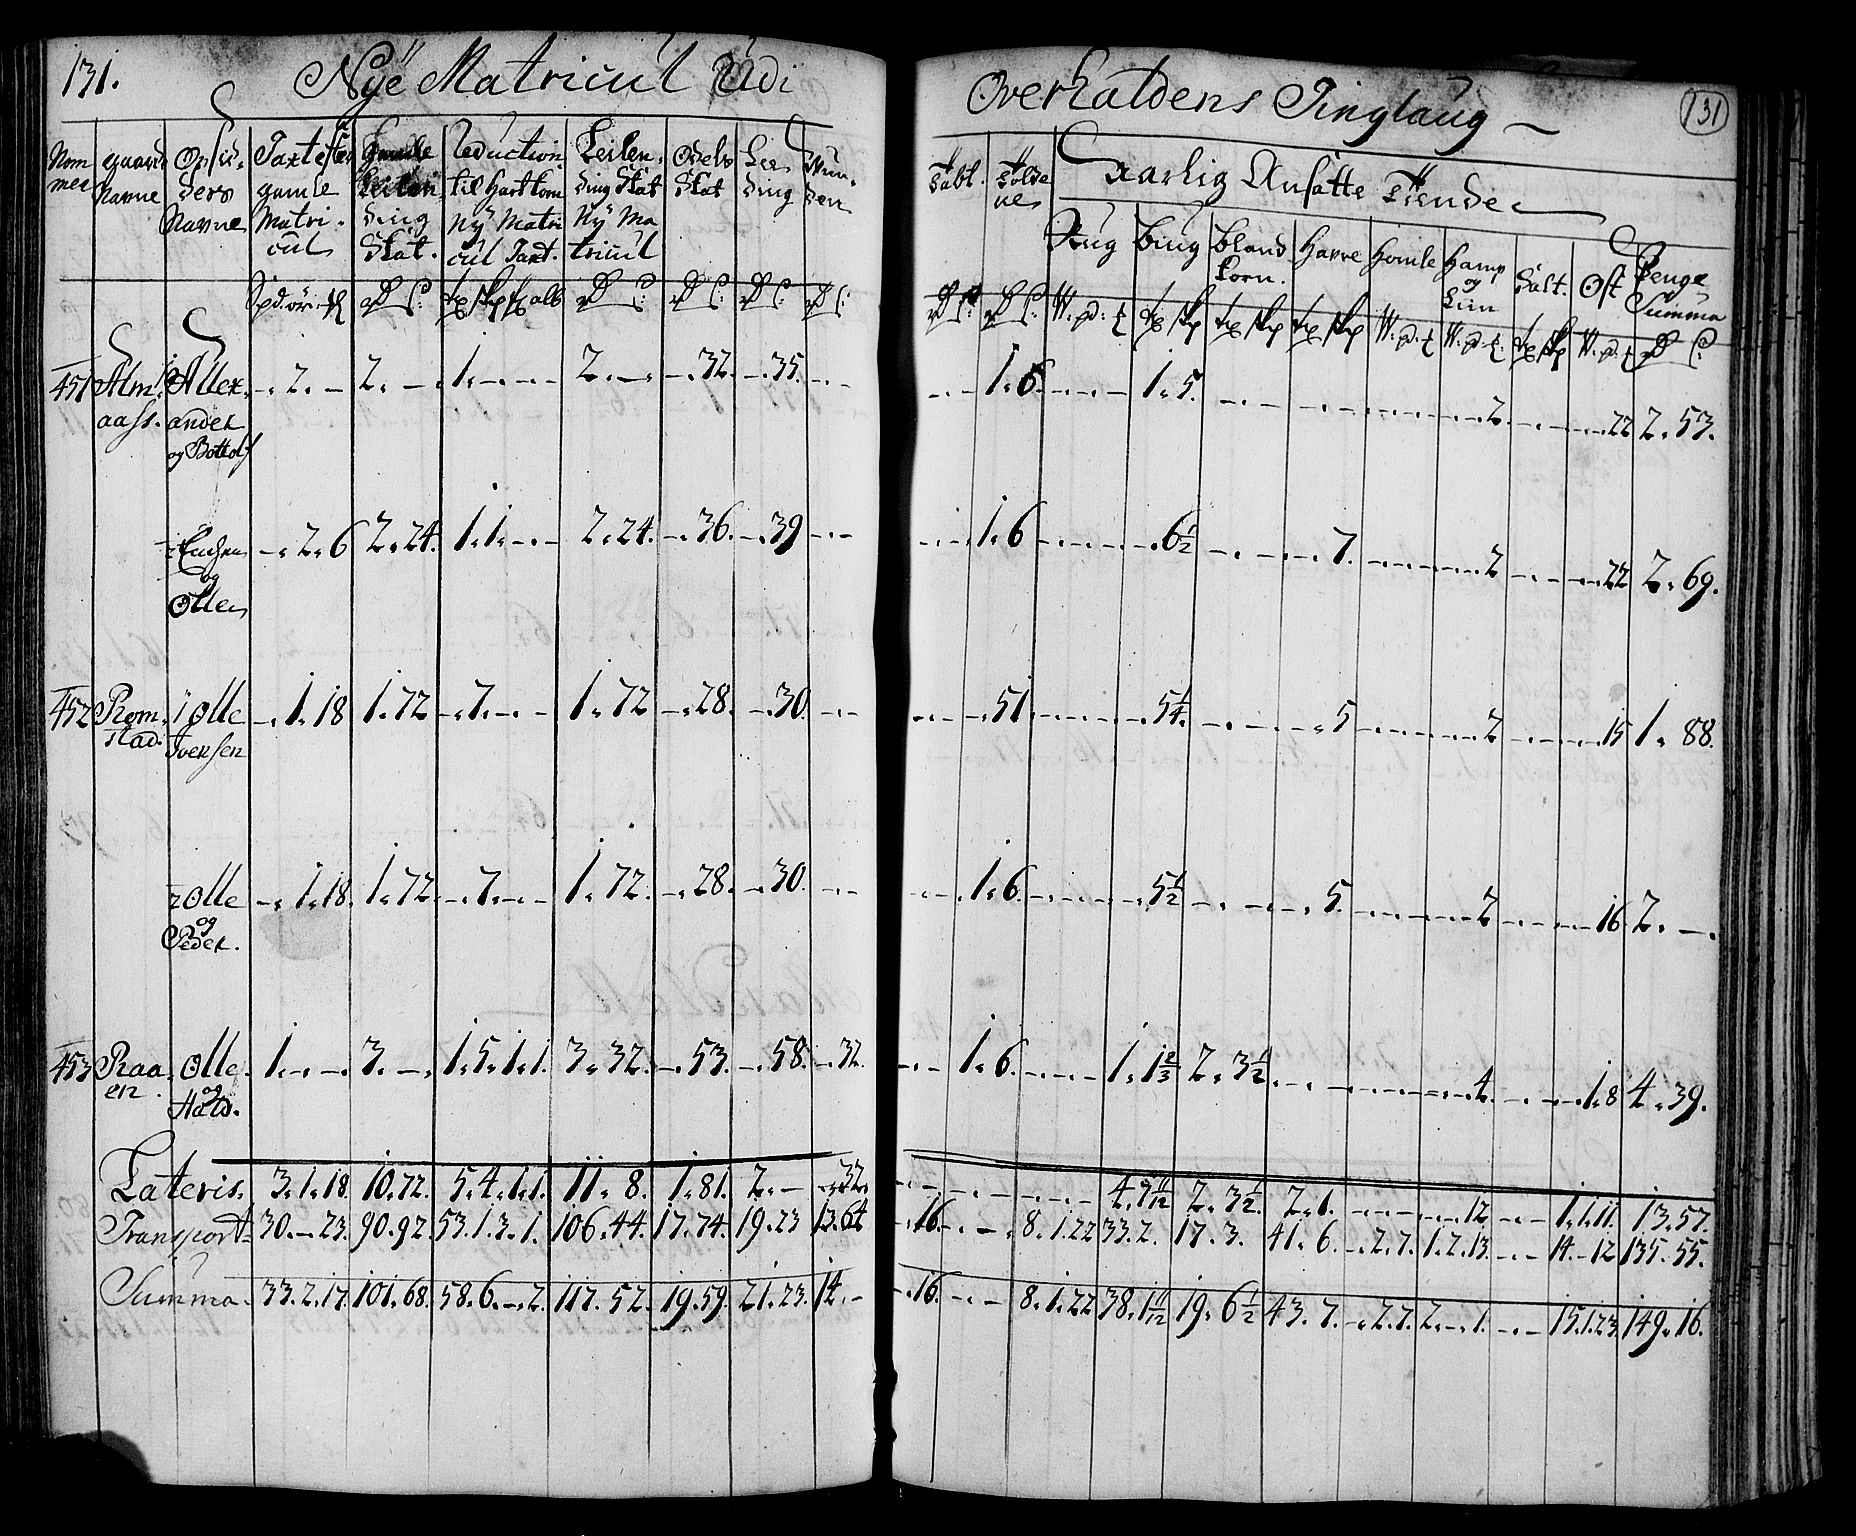 131. Nÿe Matricul Udi Overhaldens Tinglaug 131
Nom mer | gaard Navne | Opsid ders Navne | Taxt efter gamle Matri cul | Gamle Leilen ding Skat. | Reduction til Hartkorn Nÿ Matri cul Taxt. | Leilen ding Skat Nÿ Ma tricul | Odels Skat | Lee ding
Aarlig Ansatte Tiende
Rug | Biug | Bland Korn. | Havre | Homle | Hamp og Liin | Salt. | Ost | Penge Summa
451 Alm aass. 1 Allex ander og Bottolf -.2.- 2.- 1.-.-.- 2.- -.32. -.35. -.- | -.- 1.6. -.-.- 1.5. -.- -.- -.-.- -.-.2. -.- -.-.22 2.53.
2 Erichen og Ollen -.2.6 2.24. 1.1.-.- 2.24. -.36. -.39 -.- | -.- 1.6 -.-.- -.6½ -.- -.7. -.-.- -.-.2 -.- -.-.22 2.69.
452 Rom stad 1 Olle Ivensen -.1.18 1.72 -.7.-.- 1.72 -.28. -.30. -.- | -.- -.51 -.-.- -.5¼. -.- -.5 -.-.- -.-.2 -.- -.-.15 1.88.
2 Olle og Peder. -.1.18. 1.72. -.7.-.- 1.72. -.28. -.30. -.- | -.- 1.6. -.-.- -.5½ -.- -.5. -.-.- -.-.2 -.- -.-.16 2.-.
453 Raa en. Olle og Hald. 1.-.- 3.- 1.5.1.1. 3.32. -.53. -.58. -.32. | -.- 1.6. -.-.- 1.1⅔ 2.3½ -.- -.-.- -.-.4. -.- -.1.8 4.39.
Lateris. 3.1.18. 10.72. 5.4.1.1. 11.8. 1.81. 2.- -.32. | -.- -.- -.-.- 4.3 11/12 2.3½. 2.1. -.-.- -.-.12. -.- 1.1.11. 13.57.
Transport 30.-.23. 90.92. 53.1.3.1. 106.44. 17.74. 19.23 13.64 | -.16. -.- 8.1.22 33.2. 17.3. 41.6. -.2.7. 1.2.13. -.- 14.-.12 135.55.
Summa. 33.2.17. 101.68. 58.6.-.2. 117.52. 19.59. 21.23. 14.- | -.16. -.- 8.1.22 38.1 11/12 19.6½ 43.7. -.2.7. 2.-.1. -.- 15.1.23. 149.16.